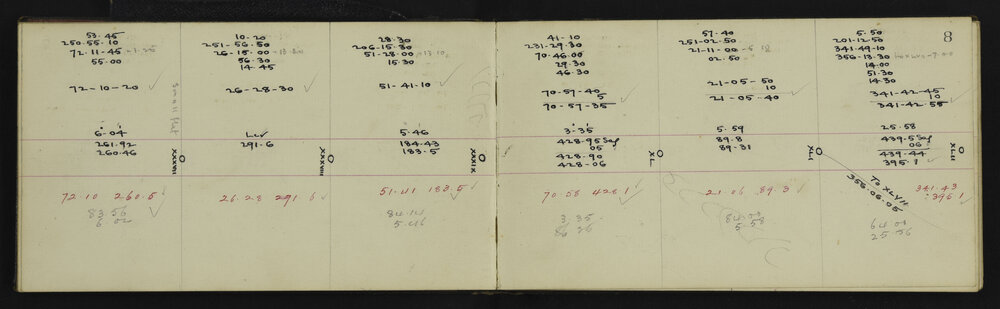 53.45
250.55.10
72.11.45 - 1.25
55.00
72-10-20
Small flat
6.04
261.92
260.46
XXXVII
72.10 260.5
83.56
6.02
10.20
251-56.50
26-15.00
56.30
14.45
26-28-30
Lev
291.6
XXXVIII
26.28 291.6
28.30
206.15.30
51-28.00 - 13.10
15.30
51-41-10
5.46
184.43
183.5
XXXIX
51.41 183.5
84.14
5.46
41-10
231-29.30
70-46.00
29.30
46.30
70-57-40
5
70-57-35
3.35
428.95 Say
05
428.90
428.06
XL
70.58 428.1
3.35
57.40
251-02.50
21-11-00
02.50
21-05-50
10
21-05.40
5.59
89.8
89.31
XLI
21.06 89.3
84.03
5.58
8
5.50
201-12.50
341-49-10
356-13.30
14.00
51.30
14.30
341-42-45
10
341-42.55
25.58
439.5 Say
06
439.44
395.1
XLII
To XLVII
356.06.05
341.43
395.1
64.08
25.56